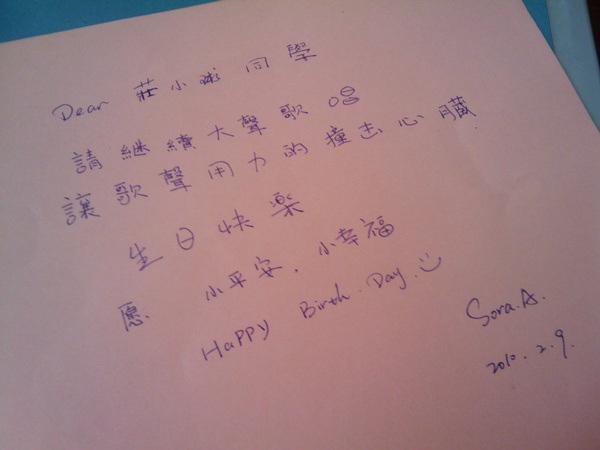 Dear 莊小球 同學
請繼續大聲歌唱
讓歌聲用力的撞击心臟
生日快楽
愿 小平安、小幸福
Happy Birth.Day. :)
Sora.A.
2010.2.9.